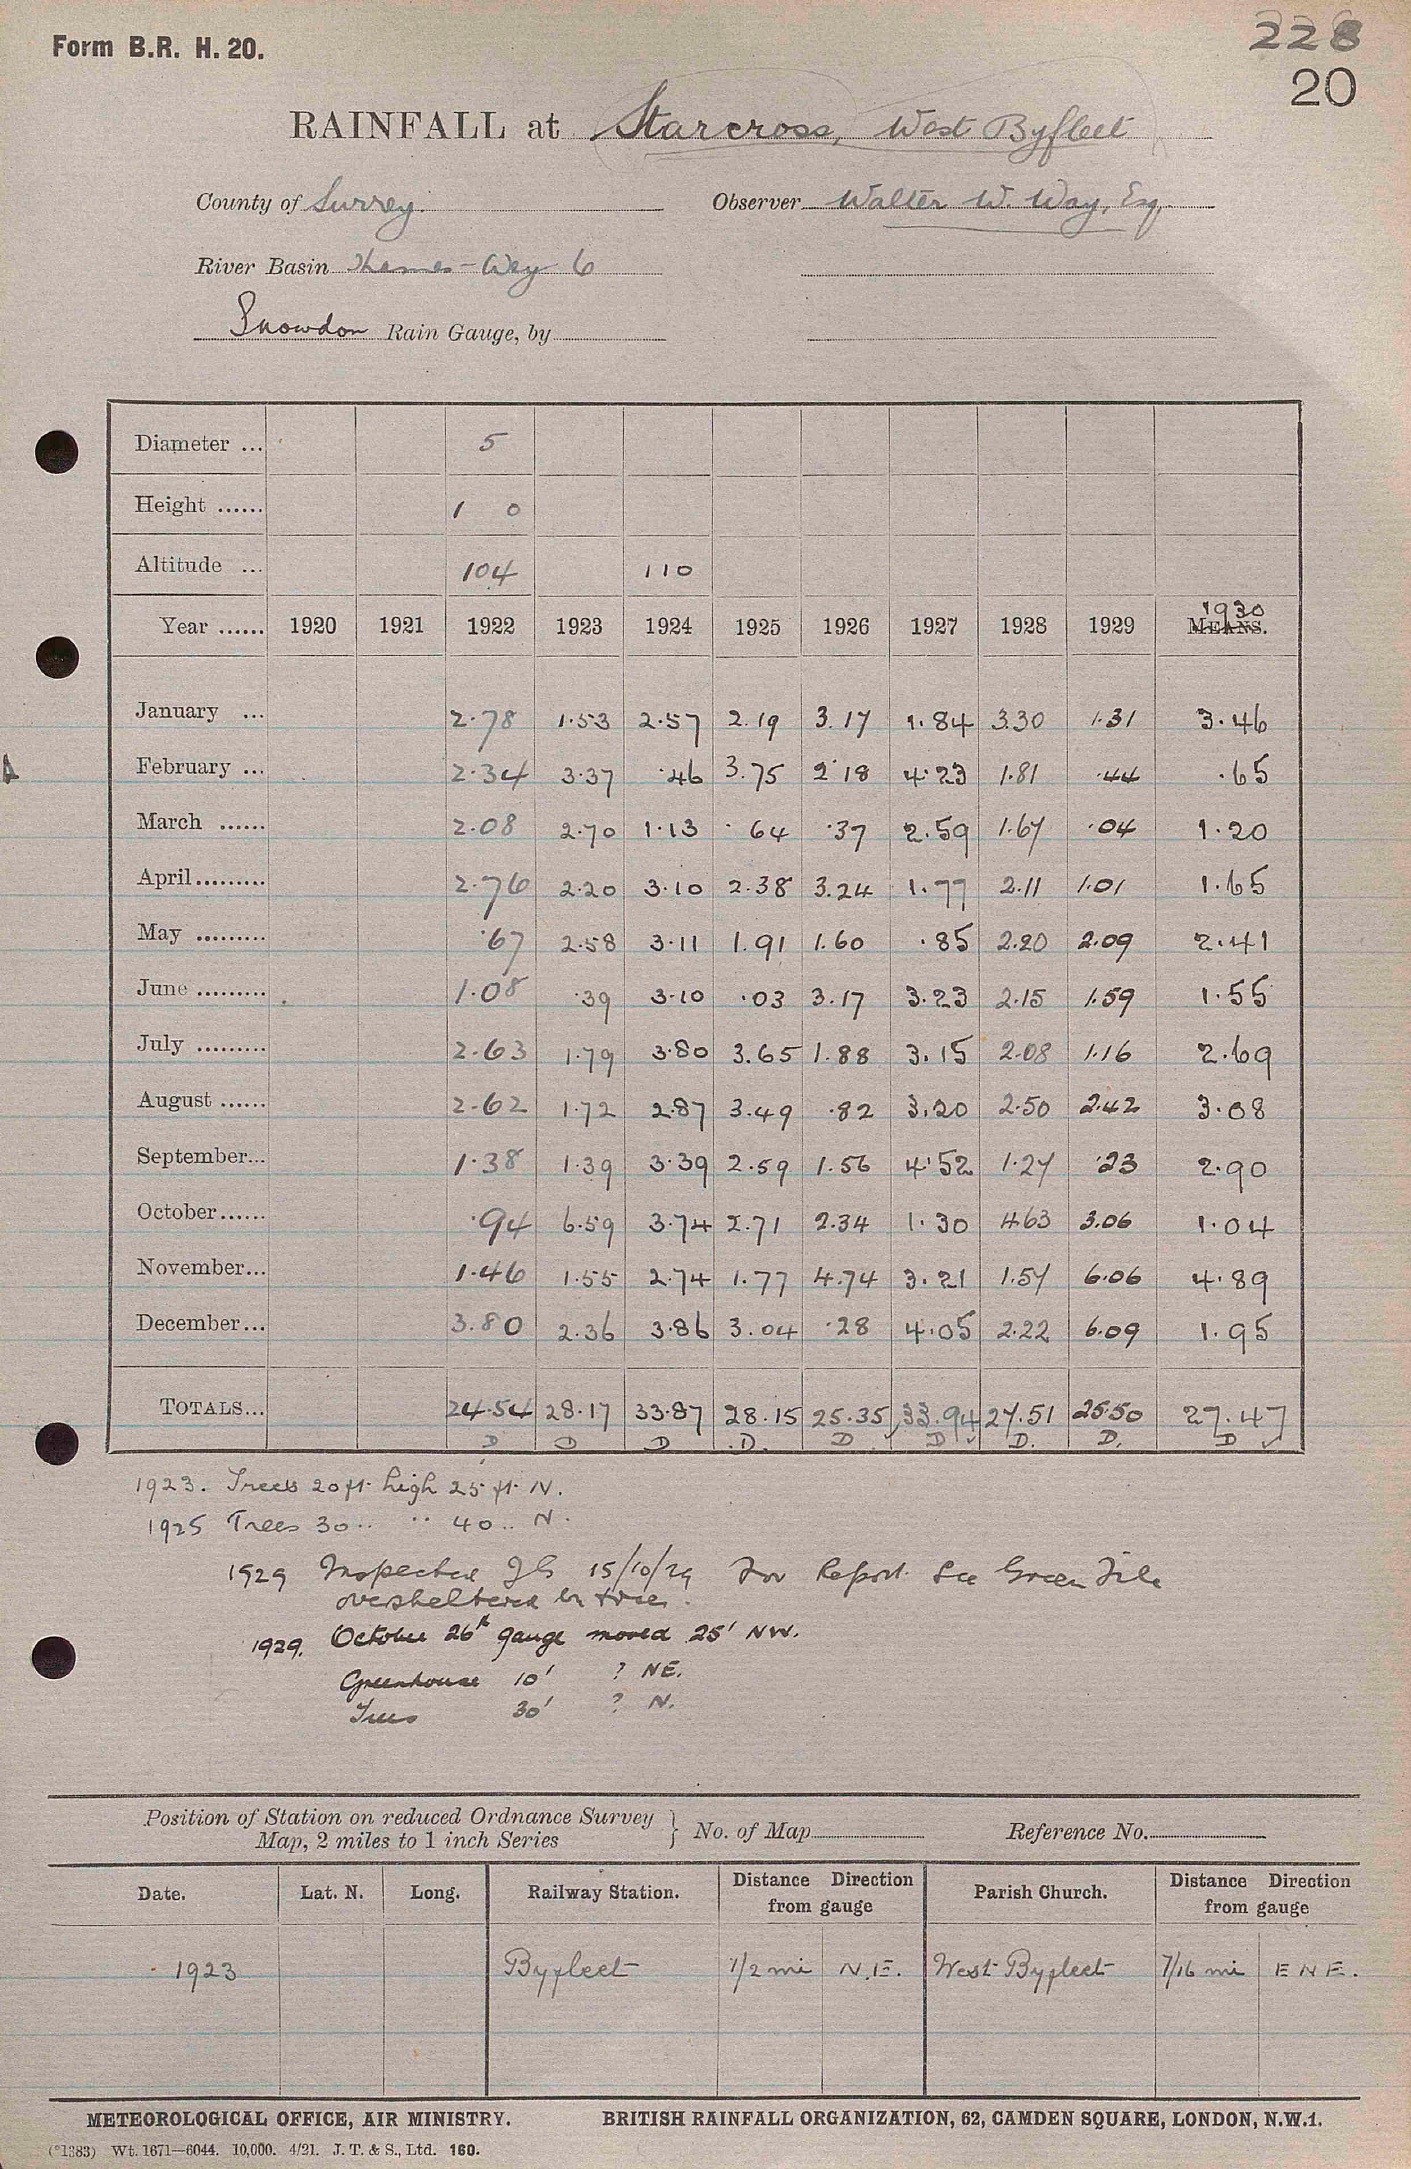 Form B.R. H. 20.
228
20
RAINFALL at Starcross, West Byfleet
County of Surrey. Observer Walter W. Way, Esq.
River Basin Thames - Wey 6
Snowdon Rain Gauge, by
Diameter ... 5
Height ...... 1 0
Altitude ... 104 110
Year ...... 1920 1921 1922 1923 1924 1925 1926 1927 1928 1929 1930 MEANS.
January ... 2.78 1.53 2.57 2.19 3.17 1.84 3.30 1.31 3.46
February ... 2.34 3.37 .46 3.75 2.18 4.23 1.81 .44 .65
March ...... 2.08 2.70 1.13 .64 .37 2.59 1.67 .04 1.20
April......... 2.76 2.20 3.10 2.38 3.24 1.77 2.11 1.01 1.65
May ......... .67 2.58 3.11 1.91 1.60 .85 2.20 2.09 2.41
June ......... 1.08 .39 3.10 .03 3.17 3.23 2.15 1.59 1.55
July ......... 2.63 1.79 3.80 3.65 1.88 3.15 2.08 1.16 2.69
August ...... 2.62 1.72 2.87 3.49 .82 3.20 2.50 2.42 3.08
September... 1.38 1.39 3.39 2.59 1.56 4.52 1.27 .23 2.90
October...... .94 6.59 3.74 2.71 2.34 1.30 4.63 3.06 1.04
November... 1.46 1.55 2.74 1.77 4.74 3.21 1.57 6.06 4.89
December... 3.80 2.36 3.86 3.04 .28 4.05 2.22 6.09 1.95
TOTALS... 24.54 28.17 33.87 28.15 25.35 33.94 27.51 25.50 27.47
D D D D. D D D. D. D
1923. Trees 20 ft. high 25 ft. N.
1925 Trees 30 .. .. 40 .. N.
1929 Inspected 15/10/29 For Report See Green File
oversheltered by trees.
1929. October 26th gauge moved 25' NW.
Greenhouse 10' ? NE.
Trees 30' ? N.
Position of Station on reduced Ordnance Survey
Map, 2 miles to 1 inch Series } No. of Map Reference No.
Date. Lat. N. Long. Railway Station. Distance Direction from gauge Parish Church. Distance Direction from gauge
1923 Byfleet 1/2 mi N.E. West Byfleet 7/16 mi E N E.
METEOROLOGICAL OFFICE, AIR MINISTRY. BRITISH RAINFALL ORGANIZATION, 62, CAMDEN SQUARE, LONDON, N.W.1.
(*1383) Wt. 1671—6044. 10,000. 4/21. J. T. & S., Ltd. 160.